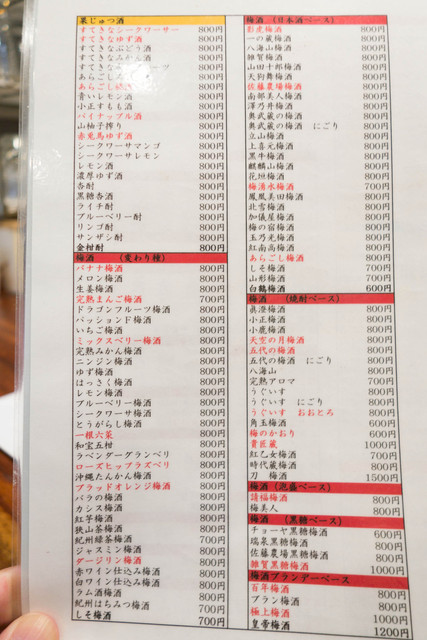 果じゅつ酒
すてきなシークワーサー 800円
すてきなゆず酒 800円
すてきなぶどう酒 800円
すてきなみかん酒 800円
すてきな 800円
あらごし 800円
あらごし 800円
青いレモン酒 800円
小正すもも酒 800円
パイナップル酒 800円
山柚子搾り 800円
赤兎馬ゆず酒 800円
シークワーサマンゴ 800円
シークワーサレモン 800円
レモン酒 800円
濃厚ゆず酒 800円
杏酎 800円
黒糖杏酒 800円
ライチ酎 800円
ブルーベリー酎 800円
リンゴ酎 800円
サンザシ酎 800円
金柑酎 800円
梅酒 (変わり種)
バナナ梅酒 800円
メロン梅酒 800円
生姜梅酒 800円
完熟まんご梅酒 700円
ドラゴンフルーツ梅酒 800円
パッションド梅酒 800円
いちご梅酒 800円
ミックスベリー梅酒 800円
完熟みかん梅酒 800円
ニンジン梅酒 800円
ゆず梅酒 800円
はっさく梅酒 800円
レモン梅酒 800円
ブルーベリー梅酒 800円
シークワーサ梅酒 800円
とうがらし梅酒 800円
一根六菜 800円
和宝五柑 800円
ラベンダーグランベリ 800円
ローズヒップラズベリ 800円
沖縄たんかん梅酒 800円
ブラッドオレンジ梅酒 800円
バラの梅酒 800円
カシス梅酒 800円
紅芋梅酒 800円
狭山茶梅酒 800円
紀州緑茶梅酒 700円
ジャスミン梅酒 800円
ダージリン梅酒 800円
赤ワイン仕込み梅酒 800円
白ワイン仕込み梅酒 800円
ラム酒梅酒 800円
紀州はちみつ梅酒 700円
しそ梅酒 700円
梅酒 (日本酒ベース)
彰虎梅酒 800円
一の蔵梅酒 800円
八海山梅酒 800円
雑賀梅酒 800円
山田十郎梅酒 800円
天狗舞梅酒 800円
佐藤農場梅酒 800円
南部美人梅酒 800円
澤乃井梅酒 800円
奥武蔵の梅酒 800円
奥武蔵の梅酒 にごり 800円
立山梅酒 800円
上喜元梅酒 800円
黒牛梅酒 800円
麒麟山梅酒 800円
花垣梅酒 800円
梅湧水梅酒 700円
鳳凰美田梅酒 800円
北雪梅酒 800円
加儀屋梅酒 800円
梅の宿梅酒 800円
玉乃光梅酒 800円
紅南高梅酒 800円
あらごし梅酒 800円
しそ梅酒 700円
山形梅酒 700円
白鶴梅酒 600円
梅酒 (焼酎ベース)
眞澄梅酒 800円
小正梅酒 800円
小鹿梅酒 800円
天空の月梅酒 800円
五代の梅酒 800円
五代の梅酒 にごり 800円
八海山 800円
完熟アロマ 700円
うぐいす 800円
うぐいす にごり 800円
うぐいす おおとろ 800円
角玉梅酒 600円
梅のかおり 600円
貴匠蔵 1000円
紅乙女梅酒 700円
時代蔵梅酒 800円
刀 梅酒 1500円
梅酒 (泡盛ベース)
請福梅酒 800円
梅美人 800円
梅酒 (黒糖ベース)
チョーヤ黒糖梅酒 600円
瑞泉黒糖梅酒 800円
佐藤農場黒糖梅酒 800円
雑賀黒糖梅酒 1000円
梅酒ブランデーベース
百年梅酒 800円
ブラン梅酒 800円
極上梅酒 1000円
皇帝梅酒 1200円